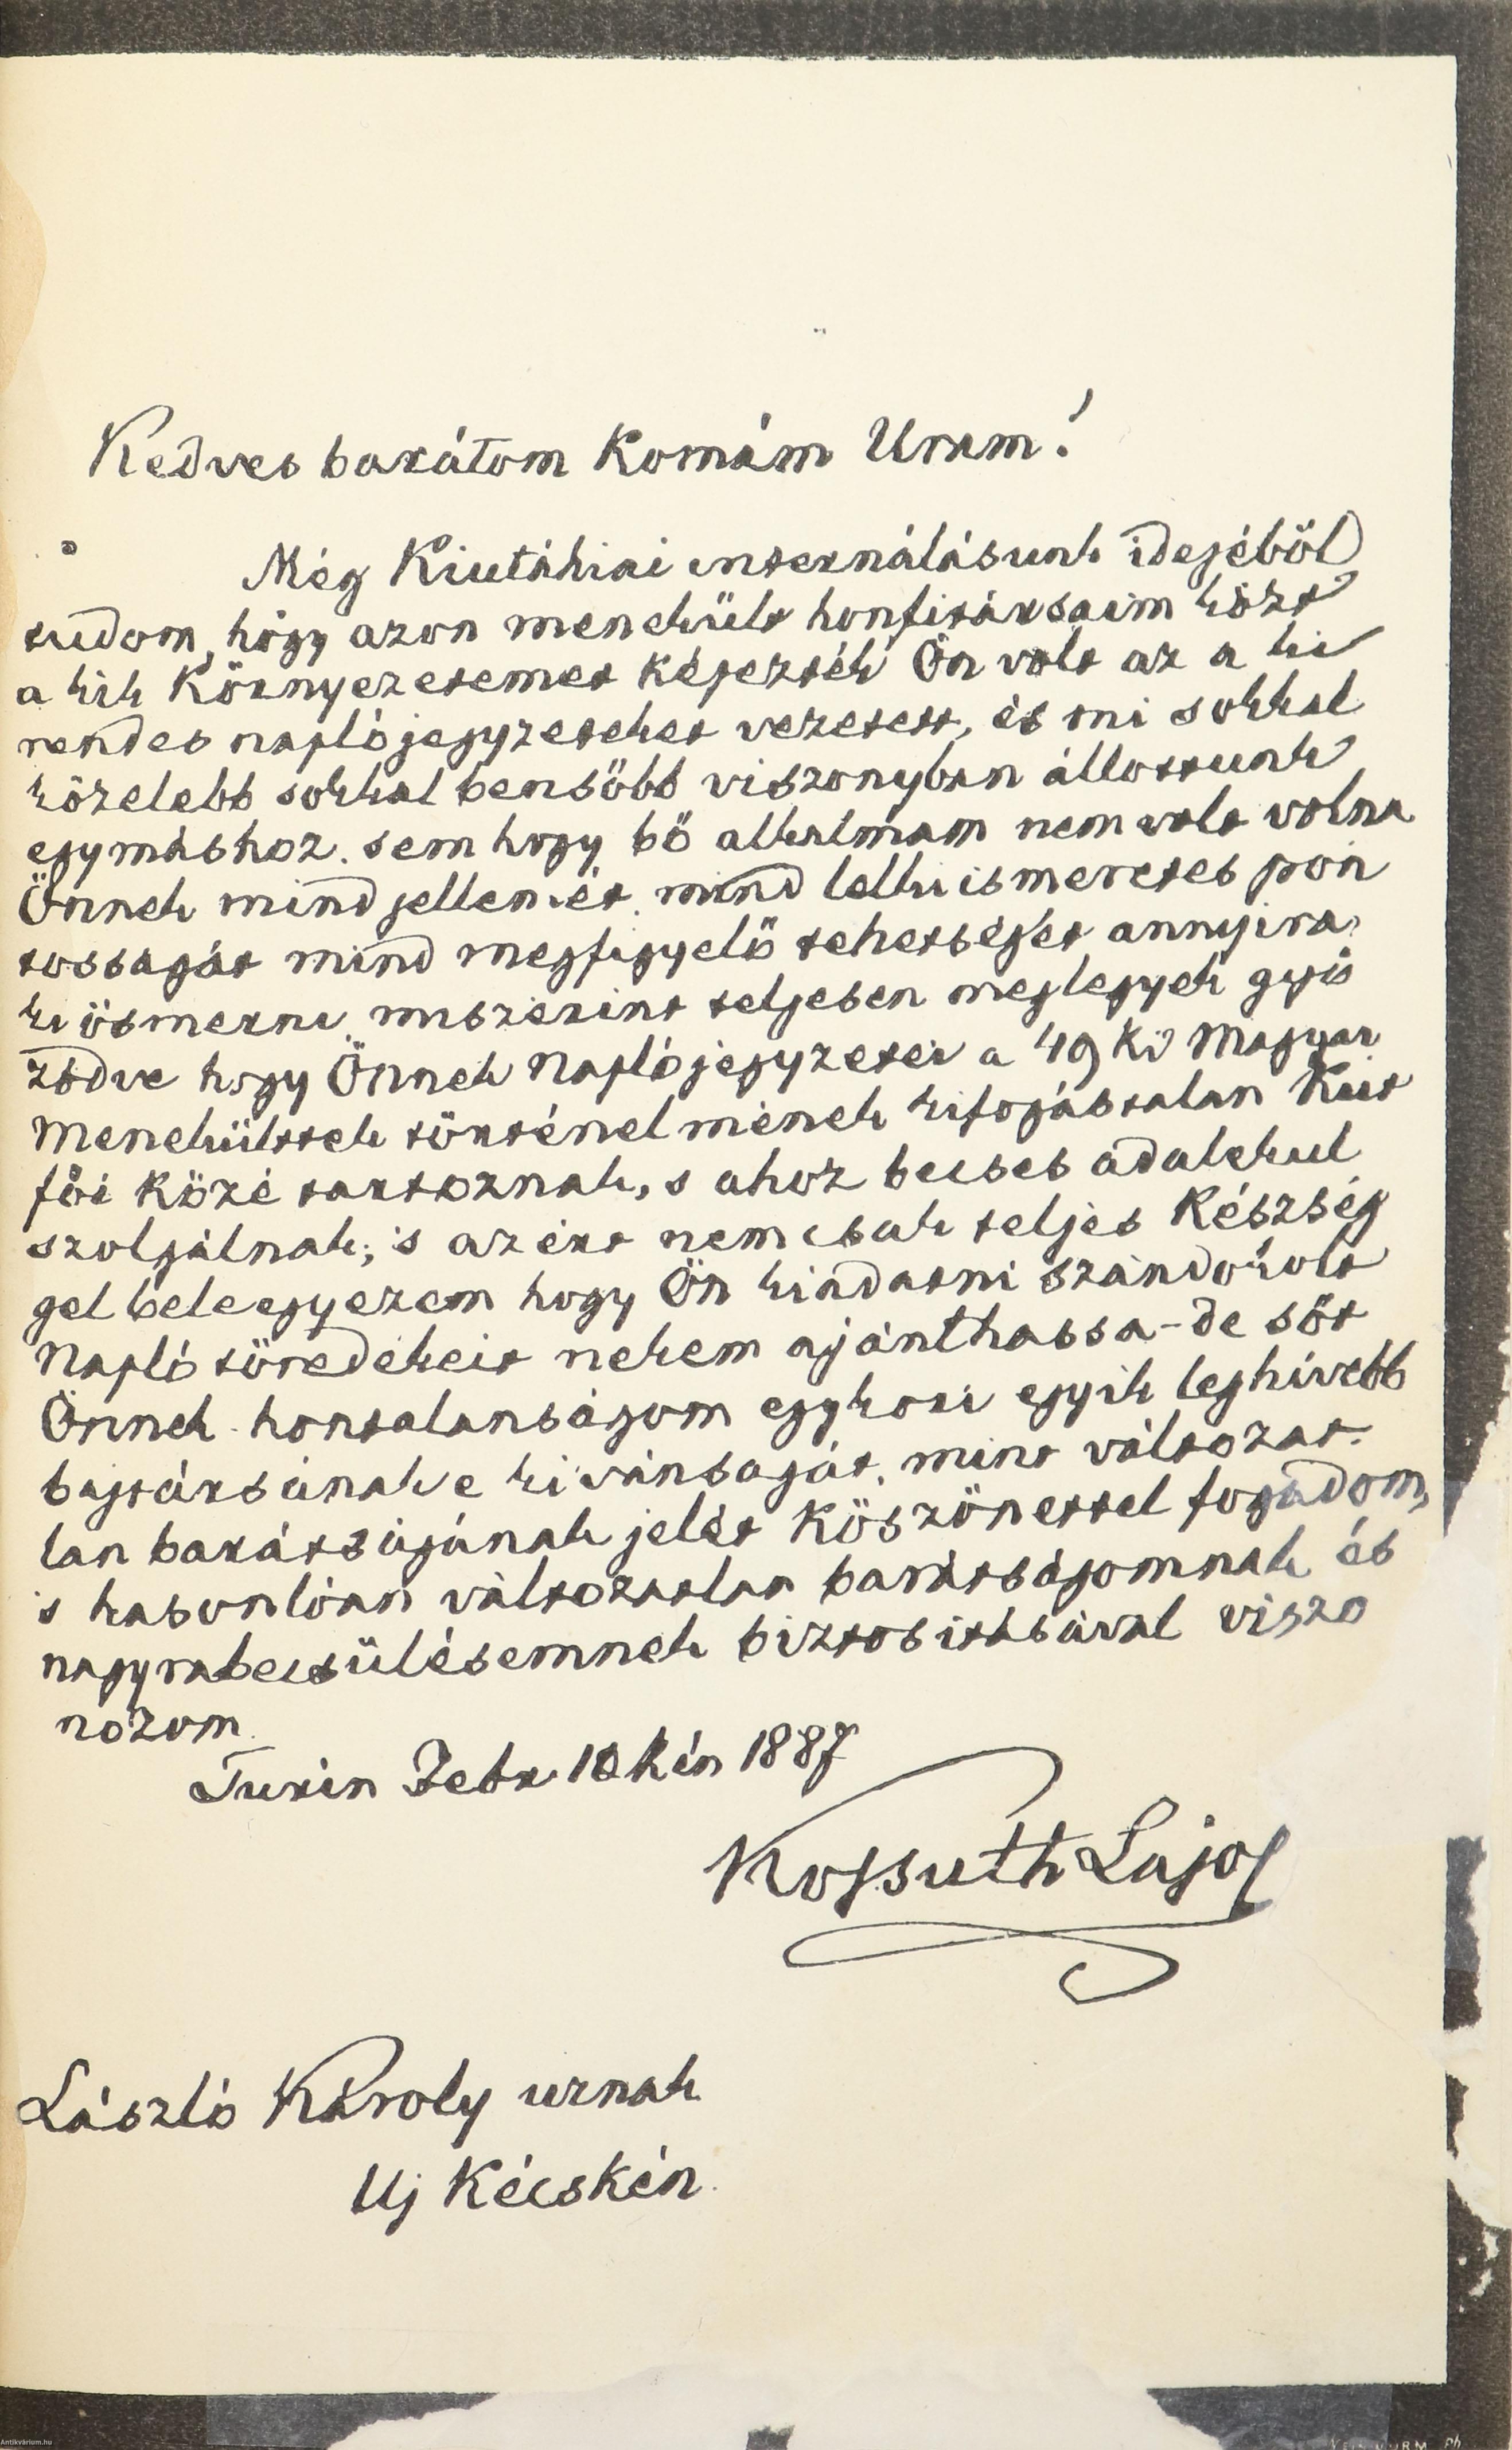 Kedves barátom Komám Uram!
Még Kiutáhiai internálásunk idejéböl
tudom, hogy azon menekült honfitársaim közt
a kik Környezetemet képezték Ön volt az a ki
rendes naplójegyzeteket vezetett, és mi sokkal
közelebb sokkal bensöbb viszonyban állottunk
egymáshoz. sem hogy bö alkalmam nem volt volna
Önnek mind jellemét, mind lelkiismeretes pon
tosságát mind megfigyelö tehetségét annyira
kiösmerni, miszerint teljesen meglegyek gyö
zödve hogy Önnek Naplójegyzetei a 49 Ki Magyar
Menekülttek törtenelmének kifogástalan Kut
föi Közé tartoznak, s ahoz becses adalekul
szolgálnak; 's azért nem csak teljes Készség
gel beleegyezem hogy Ön kiadatni szándokolt
Napló töredékeit nekem ajánlhassa - de söt
Önnek hontalanságom egykori egyik leghívebb
bajtársának e kivánságát, mint változat-
lan barátságának jelét Köszönettel fogadom,
's hasonlóan változatlan barátságomnak és
nagyrabecsülésemnek biztositásával viszo
nozom.
Turin Febr 10 Kén 1887
Kossuth Lajos
László Károly urnak
Uj Kécskén.
Antikvárium.hu